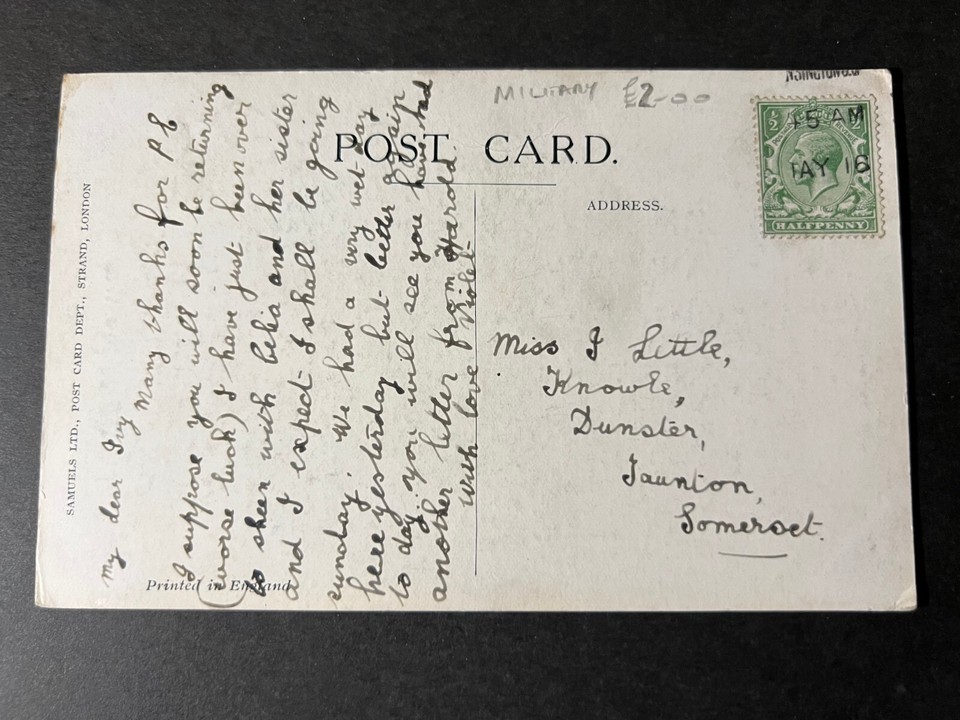 MILITARY £2-00
NSINGTON.
15 AM
MAY 16
½ ½
HALFPENNY
POST CARD.
ADDRESS.
SAMUELS LTD., POST CARD DEPT., STRAND, LONDON
Printed in England
My dear Ivy
Many thanks for P C
I suppose you will soon be returning
(worse luck) I have just been over
to sheen with and her sister
and I expect I shall be going
sunday. We had a very wet day
here yesterday but better again
to day. you will see you have had
another letter from Harold.
with love Violet
Miss I Little,
Knowle,
Dunster,
Taunton,
Somerset.